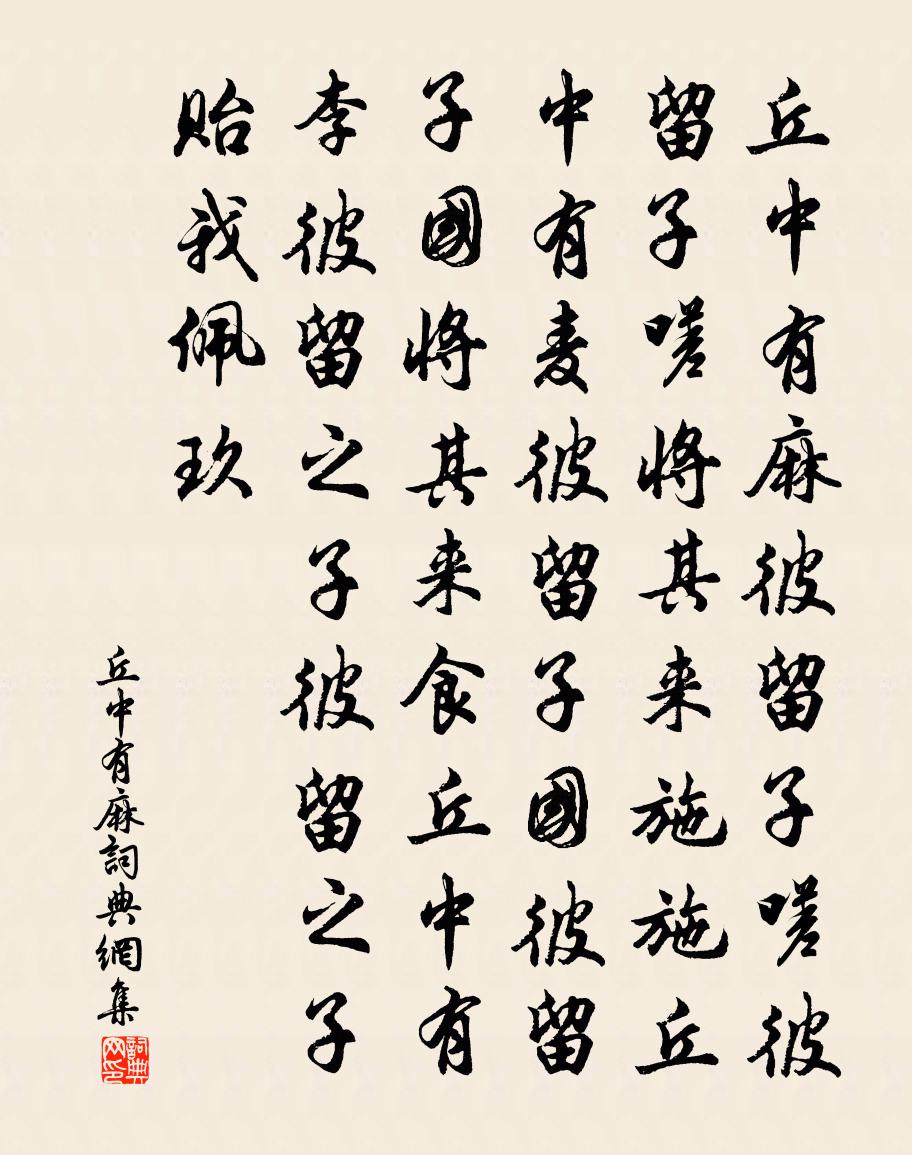 丘中有麻彼留子嗟彼
留子嗟將其来施施丘
中有麦彼留子國彼留
子國將其来食丘中有
李彼留之子彼留之子
貽我佩玖
丘中有麻詞典網集
詞典网印